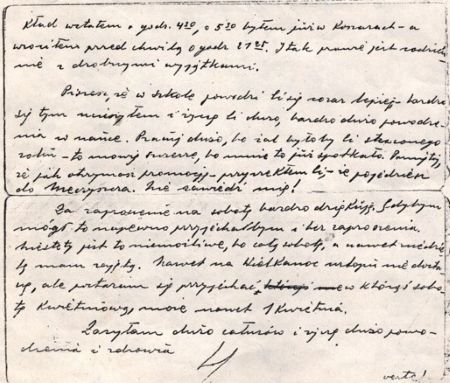 kład wstałem o godz. 4³⁰, o 5³⁰ byłem już w Koszarach - a
wróciłem przed chwilą o godz 21²⁵. I tak prawie jest codzien
nie z drobnymi wyjątkami.
Piszesz, że w szkole powodzi Ci się coraz lepiej - bardzo
się tym cieszyłem i życzę Ci dużo, bardzo dużo powodze-
nia w nauce. Pracuj dużo, bo żal byłoby Ci straconego
roku - to mówię szczerze, bo mnie to już spotkało. Pamiętaj,
że jak otrzymasz promocję - przyrzekłem Ci - że pojedziesz
do Nieczyszcza. Nie zawiedź mię!
Za zaproszenie na sobotę bardzo dziękuję. Gdybym
mógł to napewno przyjechałbym i bez zaproszenia,
niestety jest to niemożliwe, bo całą sobotę, a nawet niedzie
lę mam zajętą. Nawet na Wielkanoc urlopu nie dosta
nę, ale postaram się przyjechać w którąś sobo
tę kwietniową, może nawet 1 kwietnia.
Zasyłam dużo całusów i życzę dużo powo-
dzenia i zdrowia
verte!